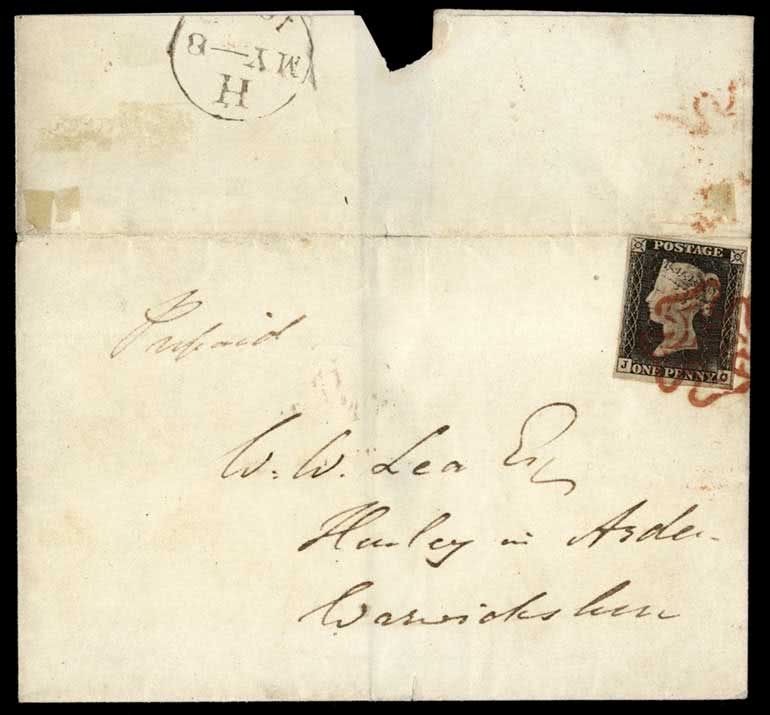 H
MY—8
POSTAGE
J ONE PENNY
Prepaid
W. W. Lea Esq
Henley in Arden
Warwickshire